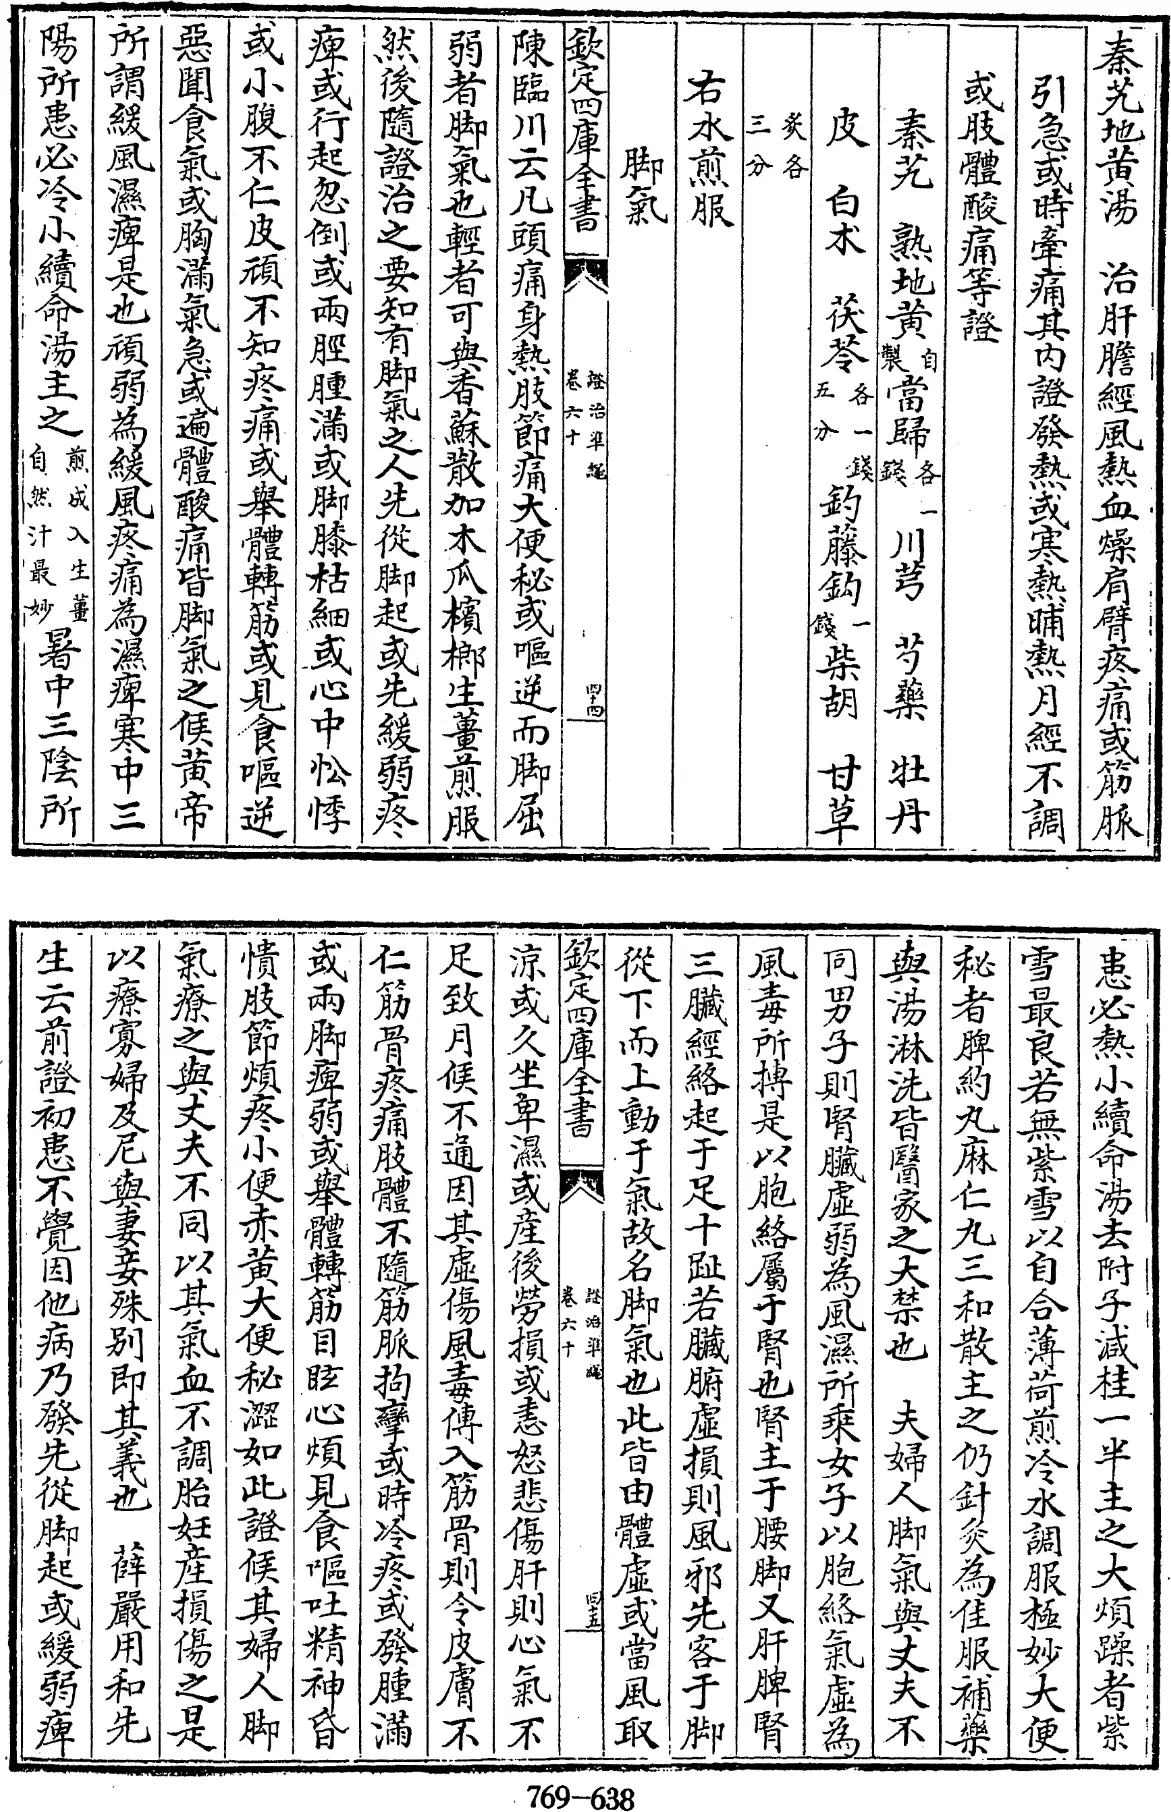 秦艽地黄湯　治肝膽經風熱血燥肩臂疼痛或筋脈
引急或時牽痛其内證發熱或寒熱晡熱月經不調
或肢體酸痛等證
秦艽　熟地黄自製當歸各一錢川芎　芍藥　牡丹
皮　白术　茯苓各一錢五分釣藤鈎一錢柴胡　甘草
炙各三分
右水煎服
脚氣
欽定四庫全書　證治準繩卷六十　四十四
陳臨川云凡頭痛身熱肢節痛大便秘或嘔逆而脚屈
弱者脚氣也輕者可與香蘇散加木瓜檳榔生薑煎服
然後隨證治之要知有脚氣之人先從脚起或先緩弱疼
痺或行起忽倒或兩脛腫滿或脚膝枯細或心中忪悸
或小腹不仁皮頑不知疼痛或舉體轉筋或見食嘔逆
惡聞食氣或胸滿氣急或遍體酸痛皆脚氣之候黄帝
所謂緩風濕痺是也頑弱為緩風疼痛為濕痺寒中三
陽所患必冷小續命湯主之煎成入生薑自然汁最妙暑中三陰所
患必熱小續命湯去附子減桂一半主之大煩躁者紫
雪最良若無紫雪以自合薄荷煎冷水調服極妙大便
秘者脾約丸麻仁丸三和散主之仍針灸為佳服補藥
與湯淋洗皆醫家之大禁也　夫婦人脚氣與丈夫不
同男子則腎臟虚弱為風濕所乘女子以胞絡氣虚為
風毒所搏是以胞絡屬于腎也腎主于腰脚又肝脾腎
三臟經絡起于足十趾若臟腑虚損則風邪先客于脚
從下而上動于氣故名脚氣也此皆由體虚或當風取
欽定四庫全書　證治準繩卷六十　四十五
涼或久坐卑濕或産後勞損或恚怒悲傷肝則心氣不
足致月候不通因其虚傷風毒傳入筋骨則令皮膚不
仁筋骨疼痛肢體不隨筋脈拘攣或時冷疼或發腫滿
或兩脚痺弱或舉體轉筋目眩心煩見食嘔吐精神昏
憒肢節煩疼小便赤黄大便秘澀如此證候其婦人脚
氣療之與丈夫不同以其氣血不調胎妊産損傷之是
以療寡婦及尼與妻妾殊别即其義也　薛嚴用和先
生云前證初患不覺因他病乃發先從脚起或緩弱痺
769—638